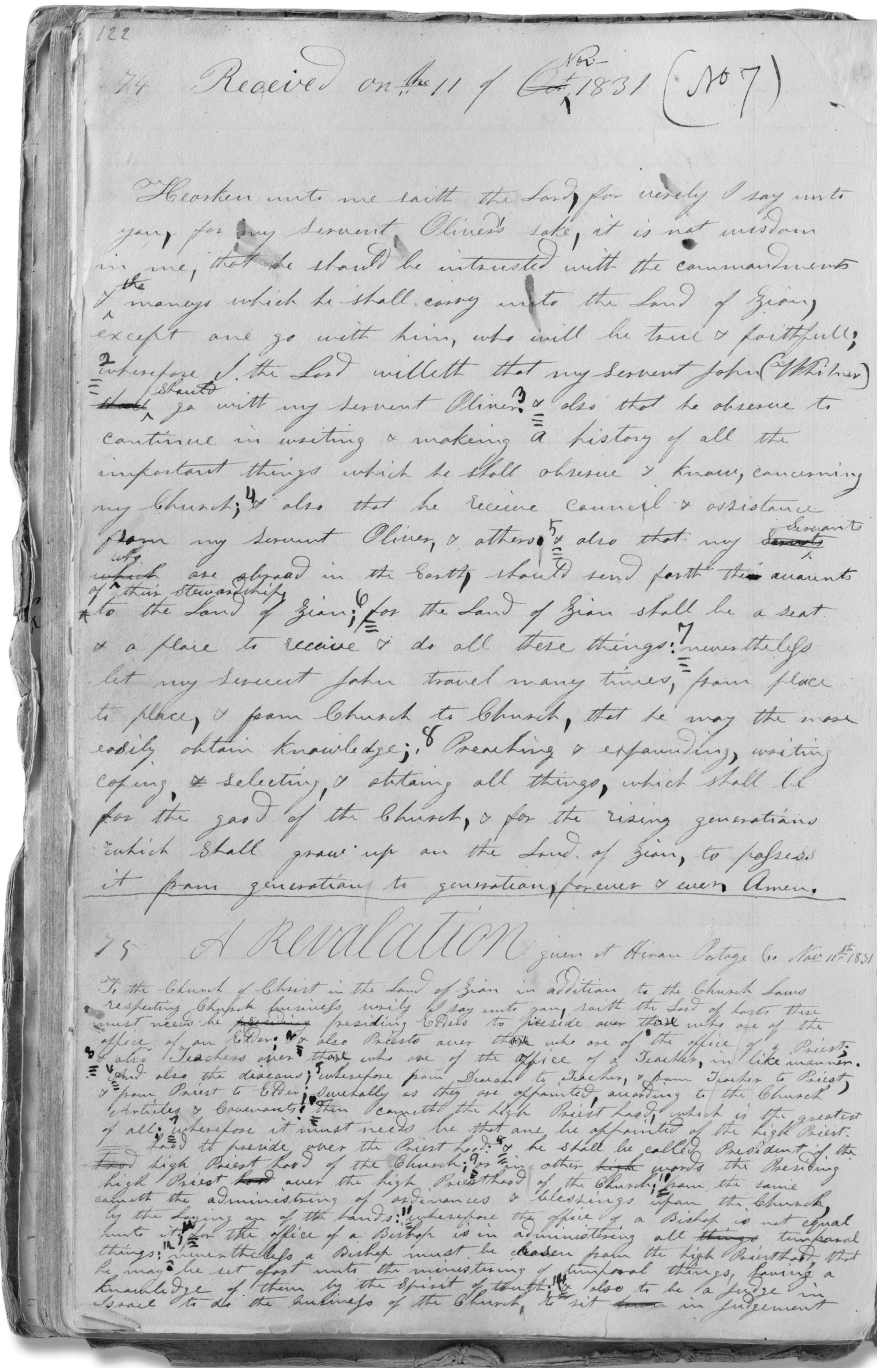 122
74 Received on the 11 of Oct. Nov- 1831 (No 7)
Hearken unto me saith the Lord, for verily I say unto
you, for my Servent Oliver's sake, it is not wisdom
in me, that he should be intrusted with the commandments
& the moneys which he shall carry unto the Land of Zion,
except one go with him, who will be true & faithfull;
2 wherefore I, the Lord willeth that my Servent John (Whitmer)
shall should go with my Servent Oliver: 3 & also that he observe to
continue in writing & makeing a history of all the
important things which he shall observe & know, concerning
my Church; 4 & also that he receive council & assistance
from my Servent Oliver, & others. 5 & also that my Servants
which who are abroad in the Earth, should send forth their
of their Stewardships
to the Land of Zion; 6 for the Land of Zion shall be a seat
& a place to receive & do all these things: 7 nevertheless
let my Servent John travel many times, from place
to place, & from Church to Church, that he may the more
easily obtain knowledge; 8 Preaching & expounding, writing
coping, & Selecting, & obtaing all things, which shall be
for the good of the Church, & for the rising generations
which Shall grow up on the Land of Zion, to possess
it from generation to generation, forever & ever. Amen.
75 A Revalation given at Hiram Portage Co Nov 11th 1831
To the Church of Christ in the Land of Zion in addition to the Church Laws
respecting Church business verily I say unto you, saith the Lord of hosts there
must needs be presiding Elders to preside over those who are of the
office of an Elder; 2 & also Priests over those who are of the office of a Priest
3 & also Teachers over those who are of the office of a Teacher, in like manner.
4 And also the deacons; 5 wherefore from Deacon to Teacher, & from Teacher to Priest,
& from Priest to Elder; severally as they are appointed, according to the Church
Articles & Covenants: then cometh the high Priest hood, which is the greatest
of all: 7 wherefore it must needs be that one be appointed of the high Priest-
hood to preside over the Priest hood: 8 & he shall be called President of the
hood high Priest hood of the Church; 9 or in other high words the Presiding
high Priest hood over the high Priesthood of the Church; 10 from the same
cometh the administring of ordinances & blessings upon the Church,
by the Laying on of the hands: 11 wherefore the office of a Bishop is not equal
unto it; for the office of a Bishop is in administering all things temporal
things: 12 nevertheless a Bishop must be chosen from the high Priesthood, that
he may be set apart unto the ministering of temporal things, having a
knowledge of them by the Spirit of truth; & also to be a Judge in
Israel to do the business of the Church, to sit in Judgement